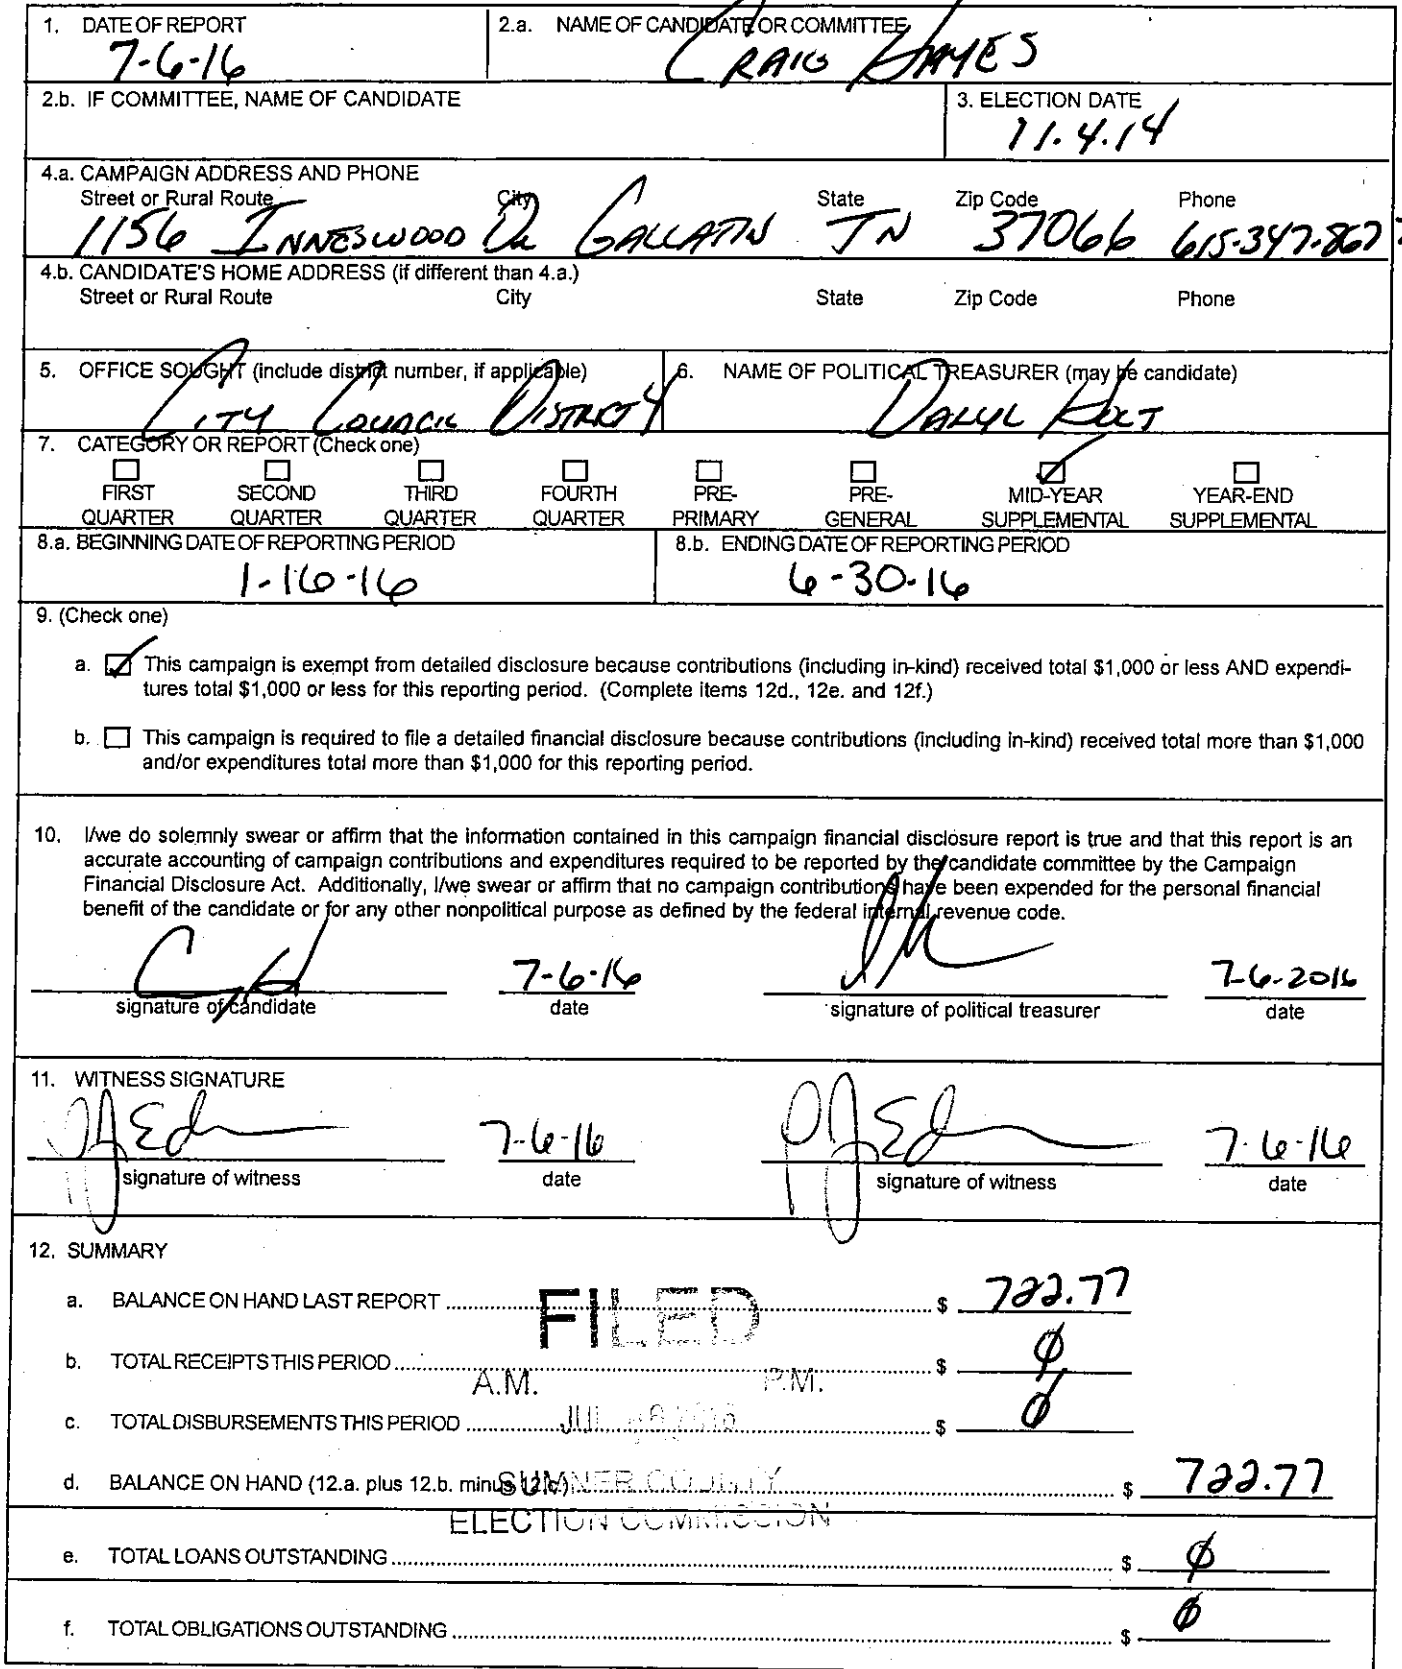 1. DATE OF REPORT
7-6-16
2.a. NAME OF CANDIDATE OR COMMITTEE
CRAIG HAYES
2.b. IF COMMITTEE, NAME OF CANDIDATE
3. ELECTION DATE
11.4.14
4.a. CAMPAIGN ADDRESS AND PHONE
Street or Rural Route City State Zip Code Phone
1156 INNESWOOD DR GALLATIN TN 37066 615-347-8677
4.b. CANDIDATE'S HOME ADDRESS (if different than 4.a.)
Street or Rural Route City State Zip Code Phone
5. OFFICE SOUGHT (include district number, if applicable)
CITY COUNCIL DISTRICT 4
6. NAME OF POLITICAL TREASURER (may be candidate)
DARYL HOLT
7. CATEGORY OR REPORT (Check one)
FIRST QUARTER
SECOND QUARTER
THIRD QUARTER
FOURTH QUARTER
PRE-PRIMARY
PRE-GENERAL
MID-YEAR SUPPLEMENTAL
YEAR-END SUPPLEMENTAL
8.a. BEGINNING DATE OF REPORTING PERIOD
1-16-16
8.b. ENDING DATE OF REPORTING PERIOD
6-30-16
9. (Check one)
a. This campaign is exempt from detailed disclosure because contributions (including in-kind) received total $1,000 or less AND expendi-
tures total $1,000 or less for this reporting period. (Complete items 12d., 12e. and 12f.)
b. This campaign is required to file a detailed financial disclosure because contributions (including in-kind) received total more than $1,000
and/or expenditures total more than $1,000 for this reporting period.
10. I/we do solemnly swear or affirm that the information contained in this campaign financial disclosure report is true and that this report is an
accurate accounting of campaign contributions and expenditures required to be reported by the candidate committee by the Campaign
Financial Disclosure Act. Additionally, I/we swear or affirm that no campaign contributions have been expended for the personal financial
benefit of the candidate or for any other nonpolitical purpose as defined by the federal internal revenue code.
7-6-16 7-6-2016
signature of candidate date signature of political treasurer date
11. WITNESS SIGNATURE
7-6-16 7-6-16
signature of witness date signature of witness date
12. SUMMARY
a. BALANCE ON HAND LAST REPORT $ 722.77
FILED
b. TOTAL RECEIPTS THIS PERIOD $ 0
A.M. P.M.
c. TOTAL DISBURSEMENTS THIS PERIOD $ 0
JUL 2016
d. BALANCE ON HAND (12.a. plus 12.b. minus 12.c.) $ 722.77
SUMNER COUNTY
ELECTION COMMISSION
e. TOTAL LOANS OUTSTANDING $ 0
f. TOTAL OBLIGATIONS OUTSTANDING $ 0